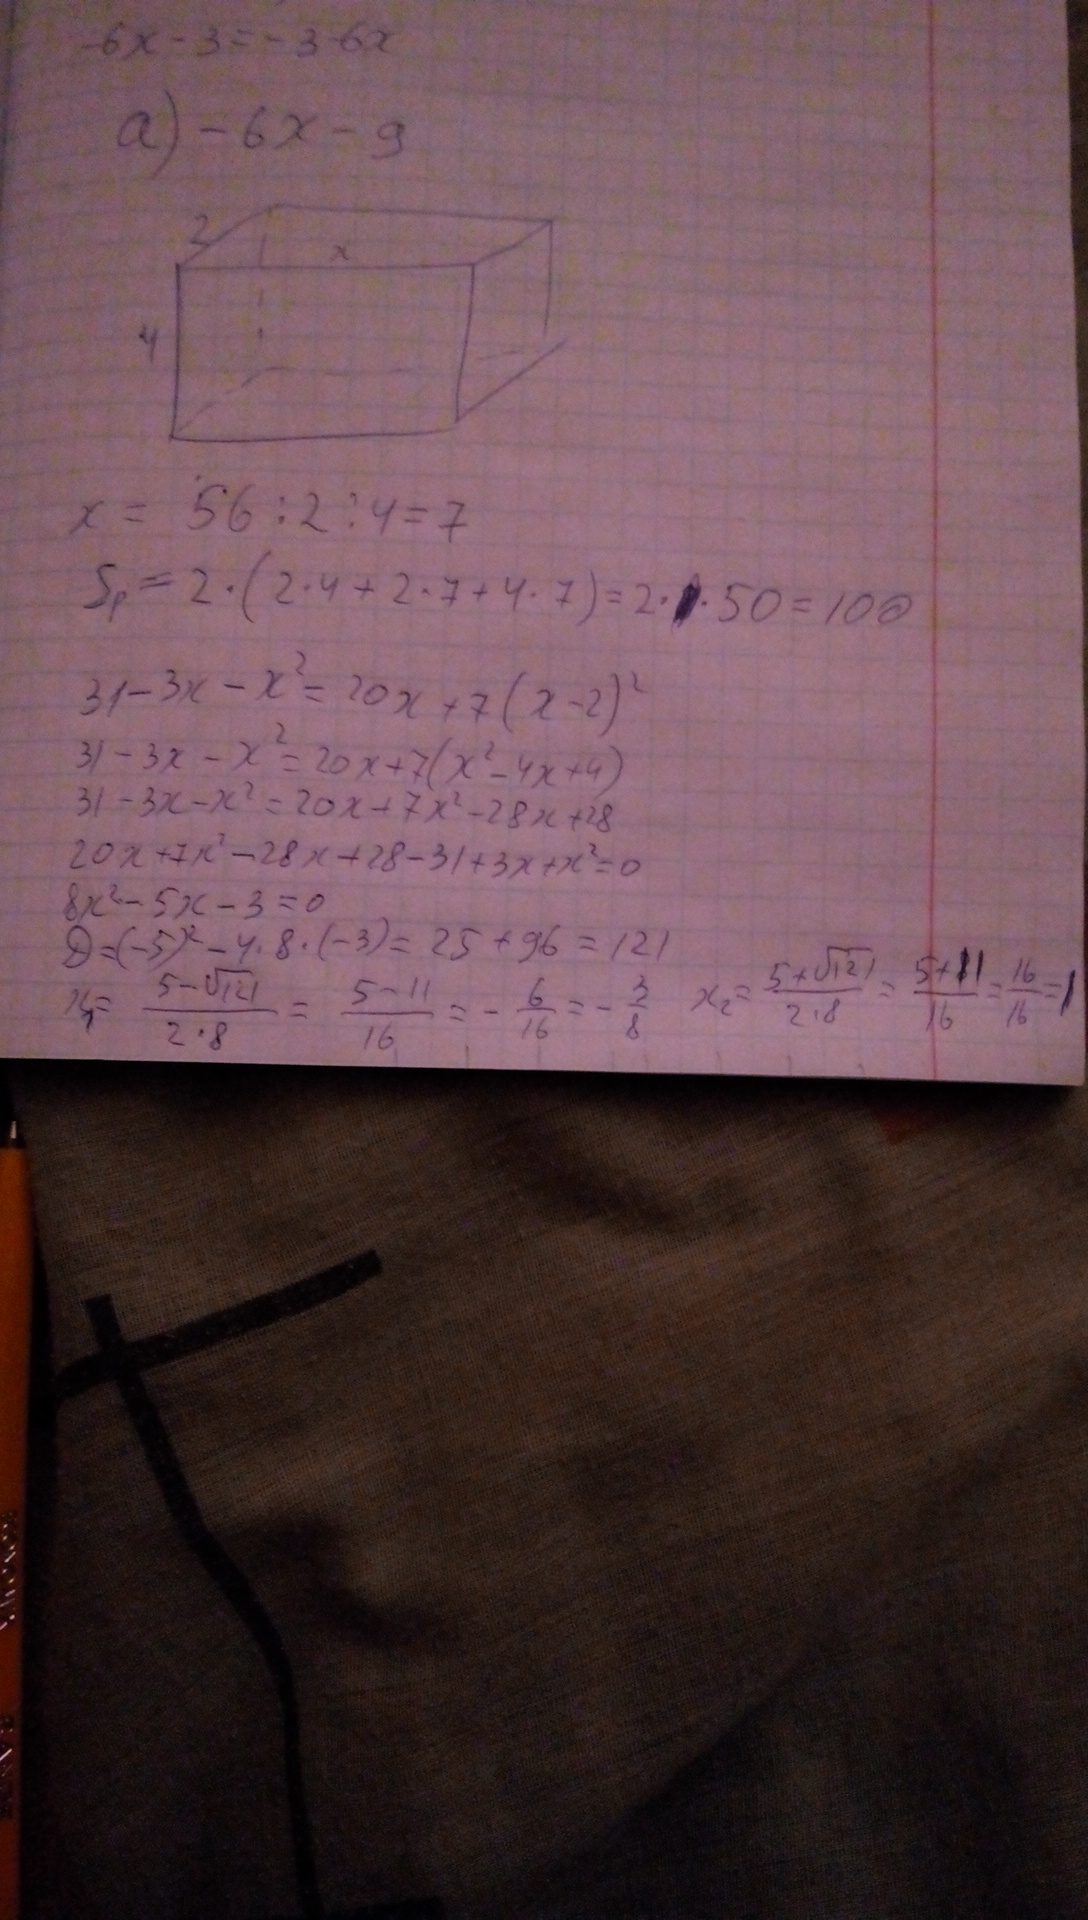 -6x-3=-3-6x
a) -6x-9
2
x
4
x = 56:2:4=7
Sₚ = 2·(2·4+2·7+4·7)=2··50=100
31-3x-x²=20x+7(x-2)²
31-3x-x²=20x+7(x²-4x+4)
31-3x-x²=20x+7x²-28x+28
20x+7x²-28x+28-31+3x+x²=0
8x²-5x-3=0
D=(-5)²-4·8·(-3)=25+96=121
x₁= (5-√121)/(2·8) = (5-11)/16 = -6/16 = -3/8 x₂= (5+√121)/(2·8) = (5+11)/16 = 16/16 = 1